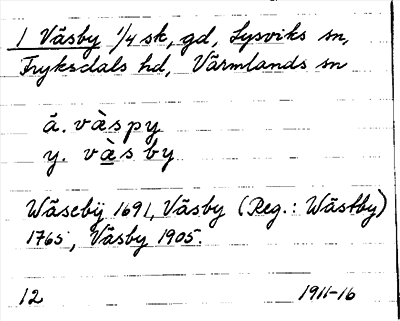 1 Väsby 1/4 sk, gd, Lysviks sn,
Fryksdals hd, Värmlands sn
ä. vàspy
y. vàsby
Wäsebÿ 1691, Väsby (Reg.: Wästby)
1765, Väsby 1905.
12 1911-16